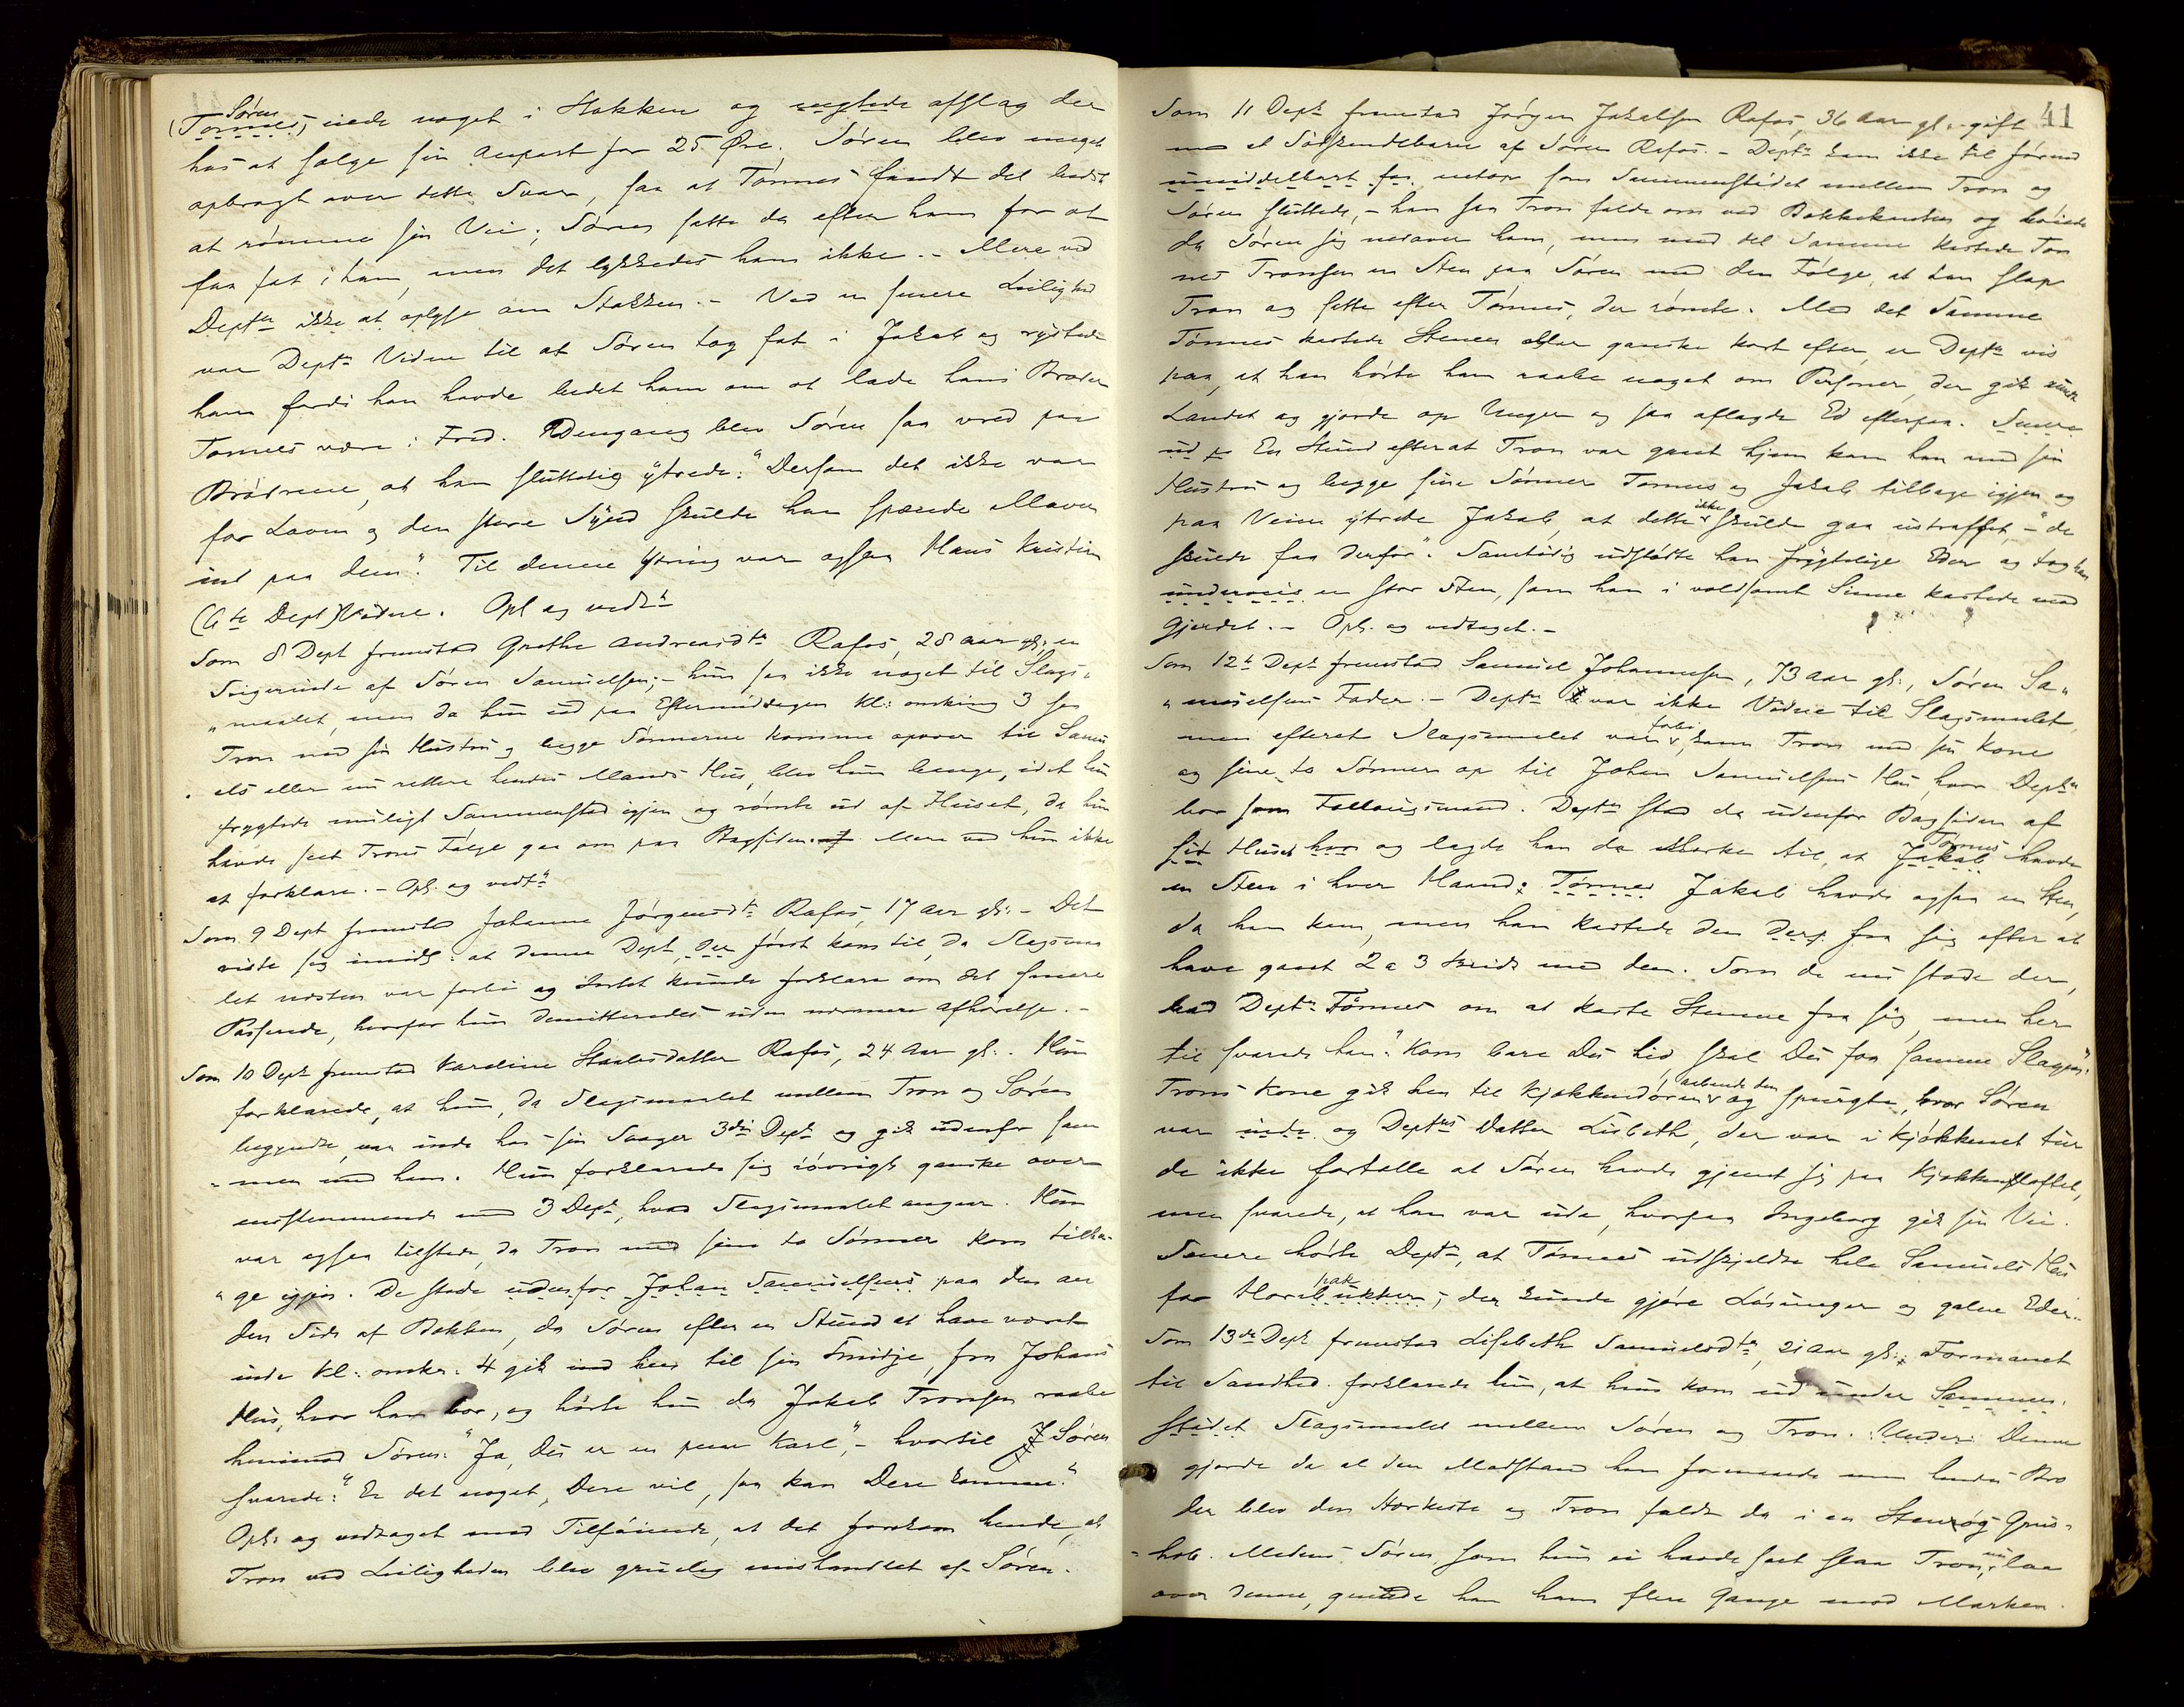 Søren
(Tørnes) iede noget i Stokken og negtede afslag der
hos at sælge sin Anpart for 25 Øre. Søren blev meget
opbragt over dette Svar, saa at Tønnes fandt det bedst
at rømme sin Vei; Søren satte da efter ham for at
faa fat i ham, men det lykkedes ham ikke. – Mere ved
Deptn ikke at oplyse om Stokken. – Ved en senere Leilighed
var Deptn Vidne til at Søren tog fat i Jakob og rystede
ham fordi han havde bedet ham om at lade hans Broder
Tønnes være i Fred. Dengang blev Søren saa vred paa
Brødrene, at han sluttelig ytrede: "Dersom det ikke var
for Loven og den store Synd skulde han sparede Maven
ind paa dem". Til denne Ytring var ogsaa Hans Kristian
(6te Dept) Vidne. Opl og vedt
Som 8 Dept fremstod Grethe Andreasdtr Rafos, 28 Aar gl., en
Svigerinde af Søren Samuelsen; – hun saa ikke noget til Slags-
"maalet, men da hun ud paa Eftermiddagen Kl: omkring 3 saa
Tron med sin Hustru og begge Sønnerne komme opover til Samu
els eller nu rettere hendes Mands Hus, blev hun bange, idet hun
frygtede muligt Sammenstød igjen og rømte ud af Huset, da hun
havde seet Trons Følge gaa om paa Bagsiden. Mere ved hun ikke
at forklare. – Opl. og vedt.
Som 9 Dept fremstod Johanne Jørgensdtr Rafos, 17 Aar gl: – Det
viste sig imidl: at denne Dept, der først kom til, da Slagsmaa
let næsten var forbi og Intet kunde forklare om det senere
Passerede, hvorfor hun demitteredes uden nærmere afhørelse. –
Som 10 Dept fremstod Karoline Staalesdatter Rafos, 24 Aar gl:. Hun
forklarede, at hun, da Slagsmaalet mellem Tron og Søren
begyndte, var inde hos sin Svoger 3die Dept og gik udenfor sam
"men med ham. Hun forklarede sig iøvrigt ganske over
ensstemmende med 3 Dept, hvad Slagsmaalet angaar. Hun
var ogsaa tilstede, da Tron med sine to Sønner kom tilba-
"ge igjen. De stode udenfor Johan Samuelsens paa den an
den Side af Bakken, da Søren efter en Stund at have været
inde Kl: omkr: 4 gik ind hen til sin Smidje, fra Johans
Hus, hvor han bor, og hørte hun da Jakob Tronsen raabe
henimod Søren: "Ja, Du er en pen Karl", – hvortil Søren
svarede: "Er det noget, Dere vil, saa kan Dere komme."
Opl. og vedtaget med Tilføiende, at det forekom hende, at
Tron ved Leiligheden blev gruelig mishandlet af Søren.
41
Som 11 Dept fremstod Jørgen Jakobsen Rafos, 36 Aar gl., gift
med et Sødskendebarn af Søren Rafos. – Deptn kom ikke til førend
umiddelbart før netop som Sammenstødet mellem Tron og
Søren sluttede, – han saa Tron falde om ved Bakkekanten og bøiede
da Søren sig nedover ham, men med det Samme kastede Tøn
nes Tronsen en Sten paa Søren med den Følge, at han slap
Tron og satte efter Tønnes, der rømte. Med det Samme
Tønnes kastede Stenen eller ganske kort efter, er Deptn vis
paa, at han hørte ham raabe noget om Personer, der gik rundt
Landet og gjorde op Unger og saa aflagde Ed efterpaa. Senere
ud p En Stund efterat Tron var gaaet hjem kom han med sin
Hustru og begge sine Sønner Tønnes og Jakob tilbage igjen og
ikke
paa Veien ytrede Jakob, at dette skulde gaa ustraffet, – "de
skulde faa derfor". Samtidig udstødte han frygtelige Eder og tog han
underveis en stor Sten, som han i voldsomt Sinne kastede mod
Gjerdet. – Opl. og vedtaget. –
Som 12te Dept fremstod Samuel Johannesen, 73 Aar gl:, Søren Sa"
"muelsens Fader. – Deptn var ikke Vidne til Slagsmaalet,
forbi
men efterat Slagsmaalet var, kom Tron med sin Kone
og sine to Sønner op til Johan Samuelsens Hus, hvor Deptn
bor som Follaugsmand. Deptn stod da udenfor Bagsiden af
Tønnes
sit Huset hvor og lagde han da Mærke til, at Jakob havde
en Sten i hver Haand; Tønnes Jakob havde ogsaa en Sten,
da han kom, men han kastede den derp. fra sig efter at
have gaaet 2 a 3 Skridt med den. Som de nu stode der,
bad Deptn Tønnes om at kaste Stenene fra sig, men her
til svarede han: "Kom bare Du hid, skal Du faa samme Slagen".
aabnede den
Trons Kone gik hen til Kjøkkendøren og spurgte, hvor Søren
var inde og Deptns Datter Lisbeth, der var i Kjøkkenet tur
de ikke fortælle at Søren havde gjemt sig paa Kjøkkenloftet,
men svarede, at han var ude, hvorpaa Ingeborg gik sin Vei.
Senere hørte Deptn, at Tønnes udskjeldte hele Samuels Hus
pak
for Horebukker, der kunde gjøre Løsunger og galne Eder.
Som 13de Dept fremstod Lisebeth Samuelsdtr, 21 Aar gl:; Formanet
til Sandhed forklarede hun, at hun kom ud under Sammen-
stødet Slagsmaalet mellem Søren og Tron. Under Denne
gjorde da al den Modstand han formaaede men hendes Bro
der blev den stærkeste og Tron faldt da i en Sten og Grus-
"hob. Medens Søren, som hun ei havde seet slaa Tron, nu laa
over denne, gnuede han ham flere Gange mod Marken.